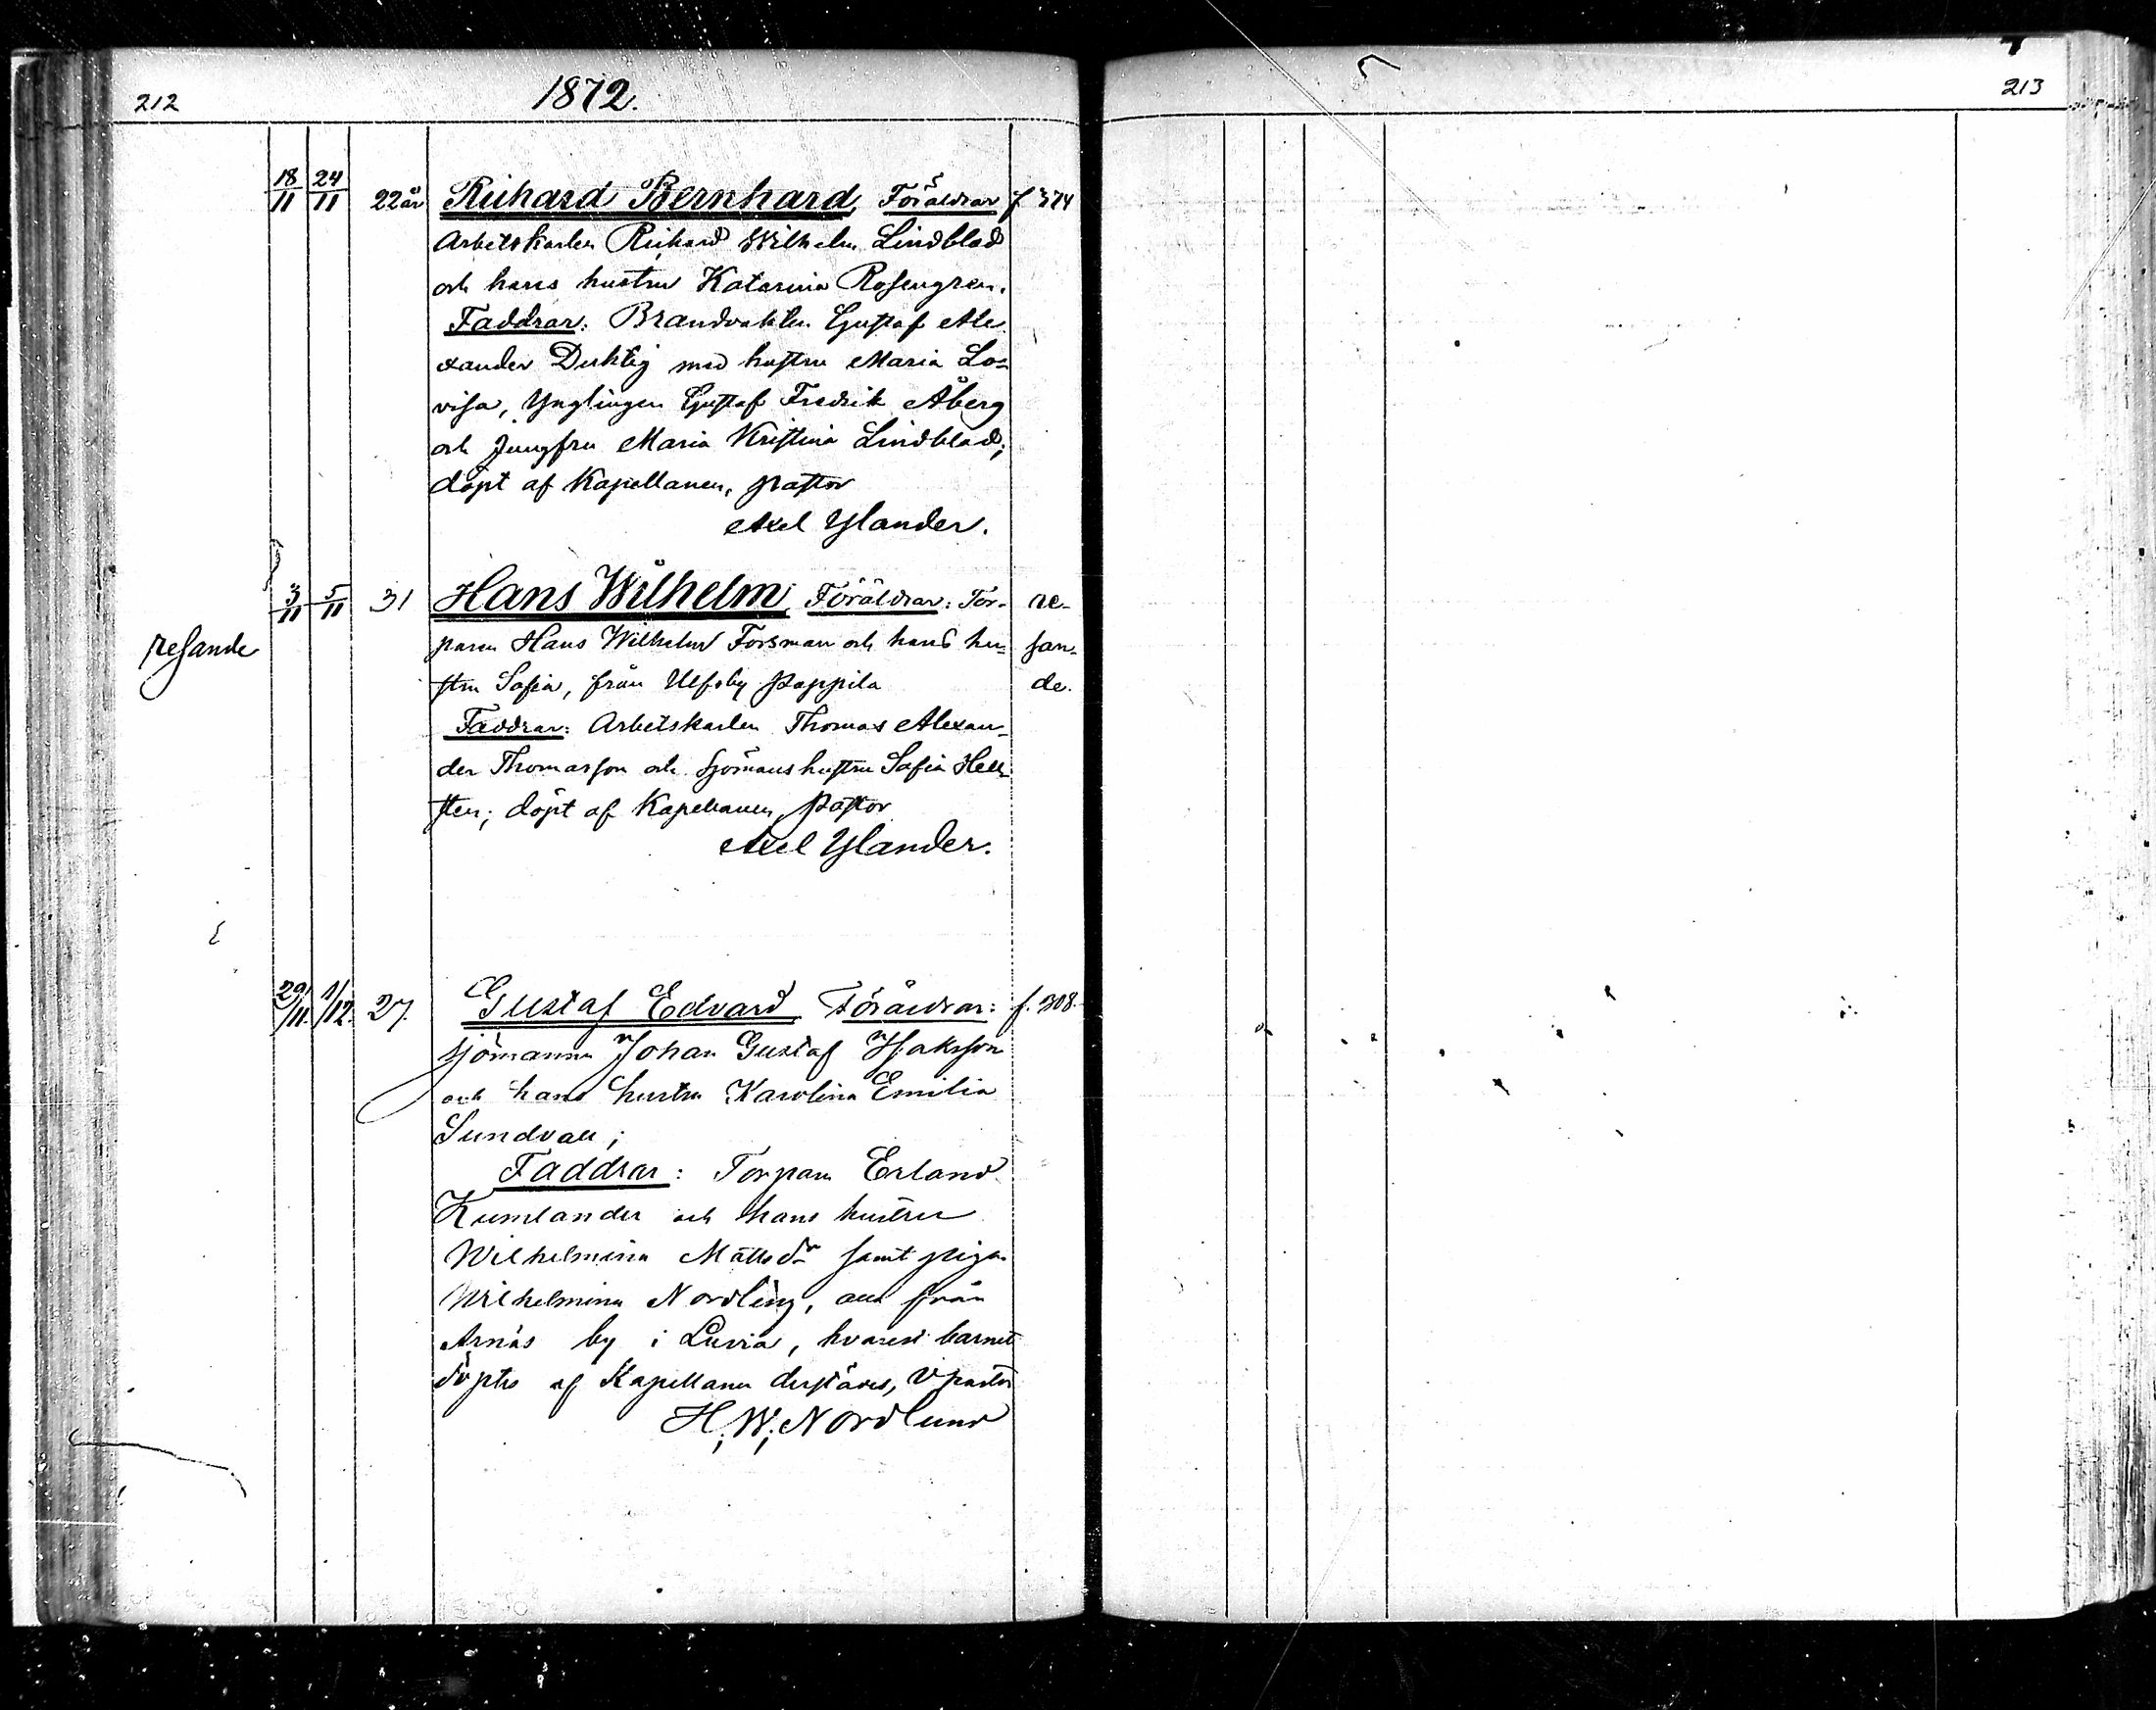 212
1872.
213
18/11 24/11 22 år Richard Bernhard, Föräldrar f 374
Arbetskarlen Richard Wilhelm Lindblad
och hans hustru Katarina Rosengren.
Faddrar: Brandvakten Gustaf Ale
xander Duktig med hustru Maria Lo=
visa, Ynglingen Gustaf Fredrik Åberg
och Jungfru Maria Kristina Lindblad;
döpt af Kapellanen, pastor
Axel Ylander.
3/11 5/11 31 Hans Wilhelm, Föräldrar: Tor- re-
resande paren Hans Wilhelm Forsman och hans hu= san-
stru Sofia, från Ulfsby Pappila de.
Faddrar: Arbetskarlen Thomas Alexan-
der Thomasson och Sjömans hustru Sofia Hell-
sten; döpt af Kapellanen, Pastor
Axel Ylander.
29/11. 1/12. 27. Gustaf Edvard Föräldrar: f. 308.
sjömannen Johan Gustaf Isaksson
och hans hustru Karolina Emilia
Sundvall;
Faddrar: Torparn Erland
Kumlander och hans hustru
Wilhelmina Mattsdr samt pigan
Wilhelmina Nordling, alla från
Arnäs by i Luvia, hvarest barnet
döptes af Kapellanen derstädes, Vpastor
H. W. Nordlund